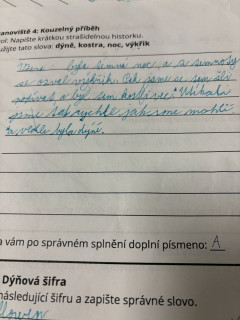 anoviště 4: Kouzelný příběh
ol: Napište krátkou strašidelnou historku.
užijte tato slova: dýně, kostra, noc, výkřik
byla temná noc, a
se ozval výkřik. jsme se tam šli
podívat a byl tam kostlivec. Utíkali
jsme tak rychle jak jsme mohli
a vedle byla dýně.
a vám po správném splnění doplní písmeno: A
Dýňová šifra
následující šifru a zapište správné slovo.